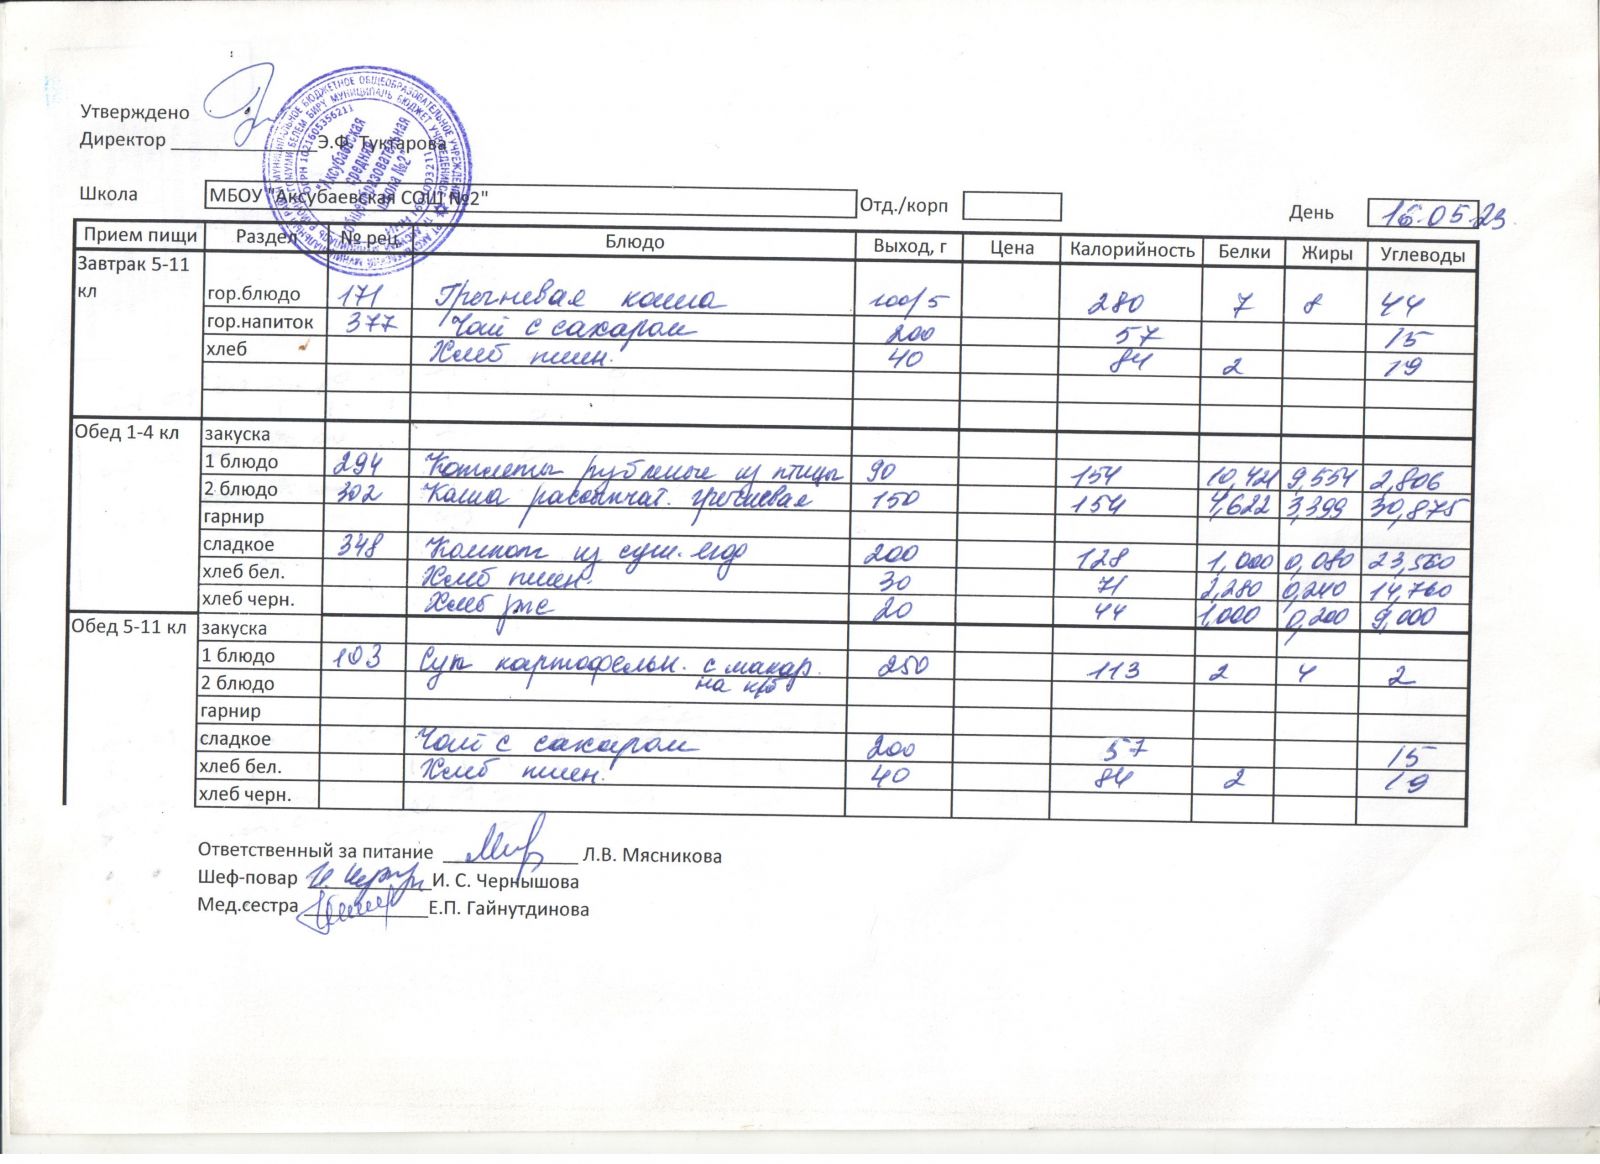 Утверждено
Директор ______________Э.Ф. Туктарова
Школа МБОУ "Аксубаевская СОШ №2" Отд./корп День 16.05.23
Прием пищи Раздел № рец. Блюдо Выход, г Цена Калорийность Белки Жиры Углеводы
Завтрак 5-11 кл
гор.блюдо 171 Гречневая каша 200/5 280 7 8 44
гор.напиток 377 Чай с сахаром 200 57 15
хлеб Хлеб пшен. 40 84 2 19
Обед 1-4 кл закуска
1 блюдо 294 Котлеты рубленые из птицы 90 154 10,421 9,554 2,806
2 блюдо 302 Каша рассыпчат. гречневая 150 154 4,622 3,399 30,875
гарнир
сладкое 348 Компот из суш. ягод 200 128 1,000 0,080 23,560
хлеб бел. Хлеб пшен. 30 71 2,280 0,240 14,760
хлеб черн. Хлеб рж 20 44 1,000 0,200 9,000
Обед 5-11 кл закуска
1 блюдо 103 Суп картофельн. с макар. 250 113 2 4 2
2 блюдо на к/б
гарнир
сладкое Чай с сахаром 200 57 15
хлеб бел. Хлеб пшен. 40 84 2 19
хлеб черн.
Ответственный за питание ____________ Л.В. Мясникова
Шеф-повар ____________И. С. Чернышова
Мед.сестра ____________Е.П. Гайнутдинова
ОГРН 1021605356211
"Аксубаевская
средняя
общеобразовательная
школа №2"